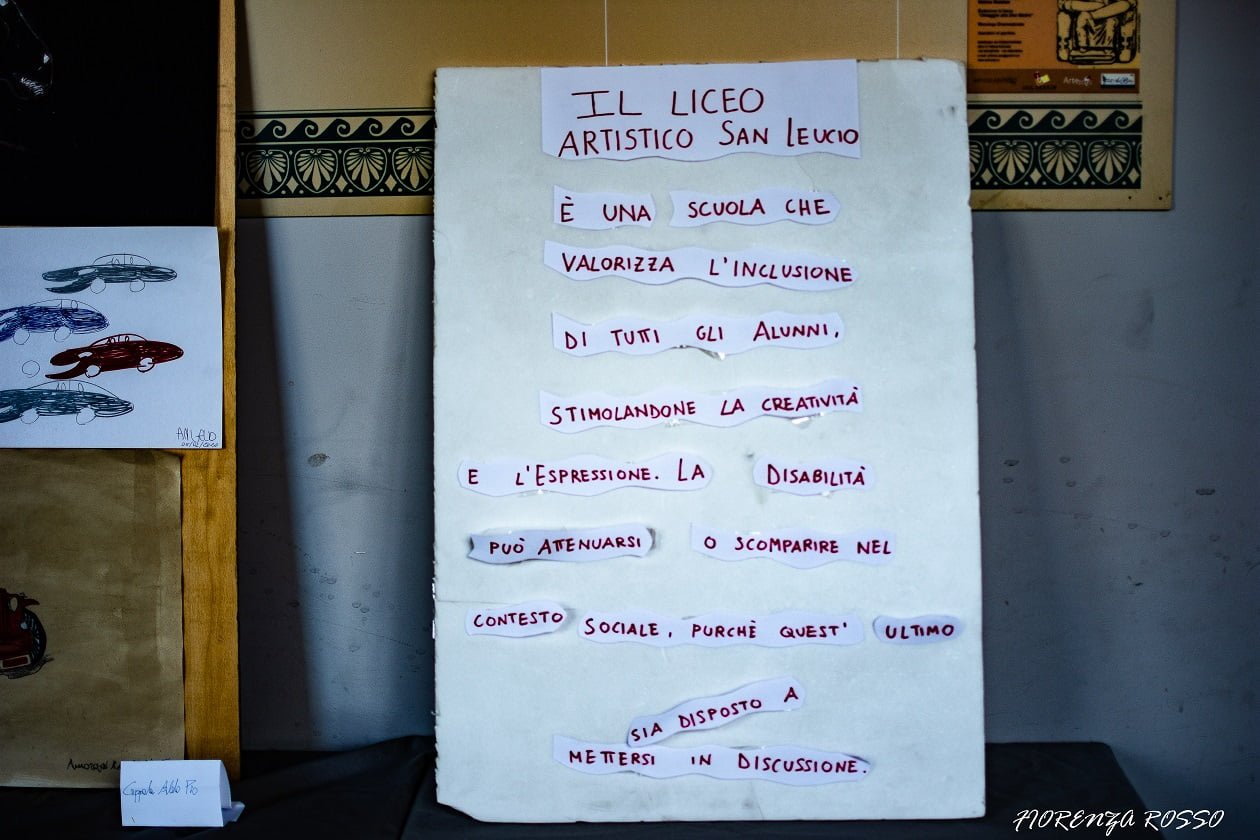 IL LICEO
ARTISTICO SAN LEUCIO
È UNA SCUOLA CHE
VALORIZZA L'INCLUSIONE
DI TUTTI GLI ALUNNI,
STIMOLANDONE LA CREATIVITÀ
E L'ESPRESSIONE. LA DISABILITÀ
PUÒ ATTENUARSI O SCOMPARIRE NEL
CONTESTO SOCIALE, PURCHÈ QUEST' ULTIMO
SIA DISPOSTO A
METTERSI IN DISCUSSIONE.
FIORENZA ROSSO